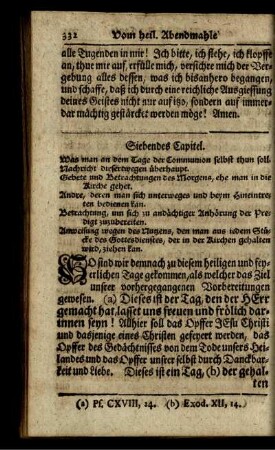 332 Vom heil. Abendmahle
alle Tugenden in mir! Ich bitte, ich flehe, ich klopffe
an, thue mir auf, erfülle mich, versicher mich der Ver-
gebung alles dessen, was ich bisanhero begangen,
und schaffe, daß ich durch eine reichliche Ausgiessung
deines Geistes nicht nur auf itzo, sondern auf immer-
dar mächtig gestärcket werden möge! Amen.
Siebendes Capitel.
Was man an dem Tage der Communion selbst thun soll.
Nachricht dieserwegen überhaupt.
Gebete und Betrachtungen des Morgens, ehe man in die
Kirche gehet.
Andre, deren man sich unterweges und beym Hineintre-
ten bedienen kan.
Betrachtung, um sich zu andächtiger Anhörung der Pre-
digt zuzubereiten.
Anweisung wegen des Nutzens, den man aus jedem Stü-
cke des Gottesdienstes, der in der Kirchen gehalten
wird, ziehen kan.
SO sind wir demnach zu diesem heiligen und fey-
erlichen Tage gekommen, als welcher das Ziel
unsrer vorhergegangenen Vorbereitungen
gewesen. (a) Dieses ist der Tag, den der HErr
gemacht hat, lasset uns freuen und frölich dar-
innen seyn! Allhier soll das Opffer JEsu Christi
und dasjenige eines Christen gefeyert werden, das
Opffer des Gedächtnisses von dem Tode unsers Hei-
landes und das Opffer unser selbst durch Danckbar-
keit und Liebe. Dieses ist ein Tag, (b) der gehal-
ten
(a) Ps. CXVIII, 24. (b) Exod. XII, 14.